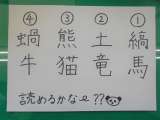 ①縞馬
②土竜
③熊猫
④蝸牛
読めるかな〜??